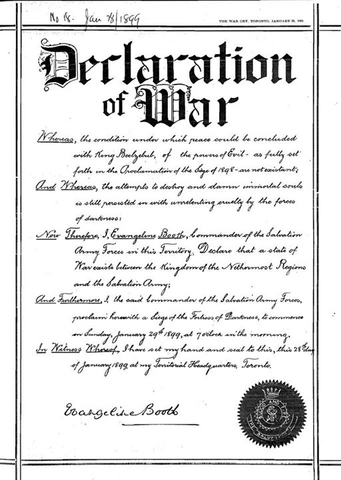 No 18. Jan 28/1899
THE WAR CRY, TORONTO, JANUARY 28, 1899.
Declaration
of War
Whereas, the condition under which peace could be concluded
with King Beelzebub, of the powers of Evil - as fully set
forth in the Proclamation of the Siege of 1898 - are not existant;
And Whereas, the attempts to destroy and damn immortal souls
is still persisted in with unrelenting cruelty by the forces
of darkness:
Now Therefore, I, Evangeline Booth, Commander of the Salvation
Army Forces in this Territory, Declare that a state of
War exists between the Kingdom of the Nethermost Regions
and the Salvation Army;
And Furthermore, I, the said Commander of the Salvation Army Forces,
proclaim herewith a Siege of the Fortress of Darkness, to commence
on Sunday, January 29th 1899, at 7 o'clock in the morning.
In Witness Whereof, I have set my hand and seal to this, this 28th day
of January 1899 at my Territorial Headquarters, Toronto.
Evangeline Booth